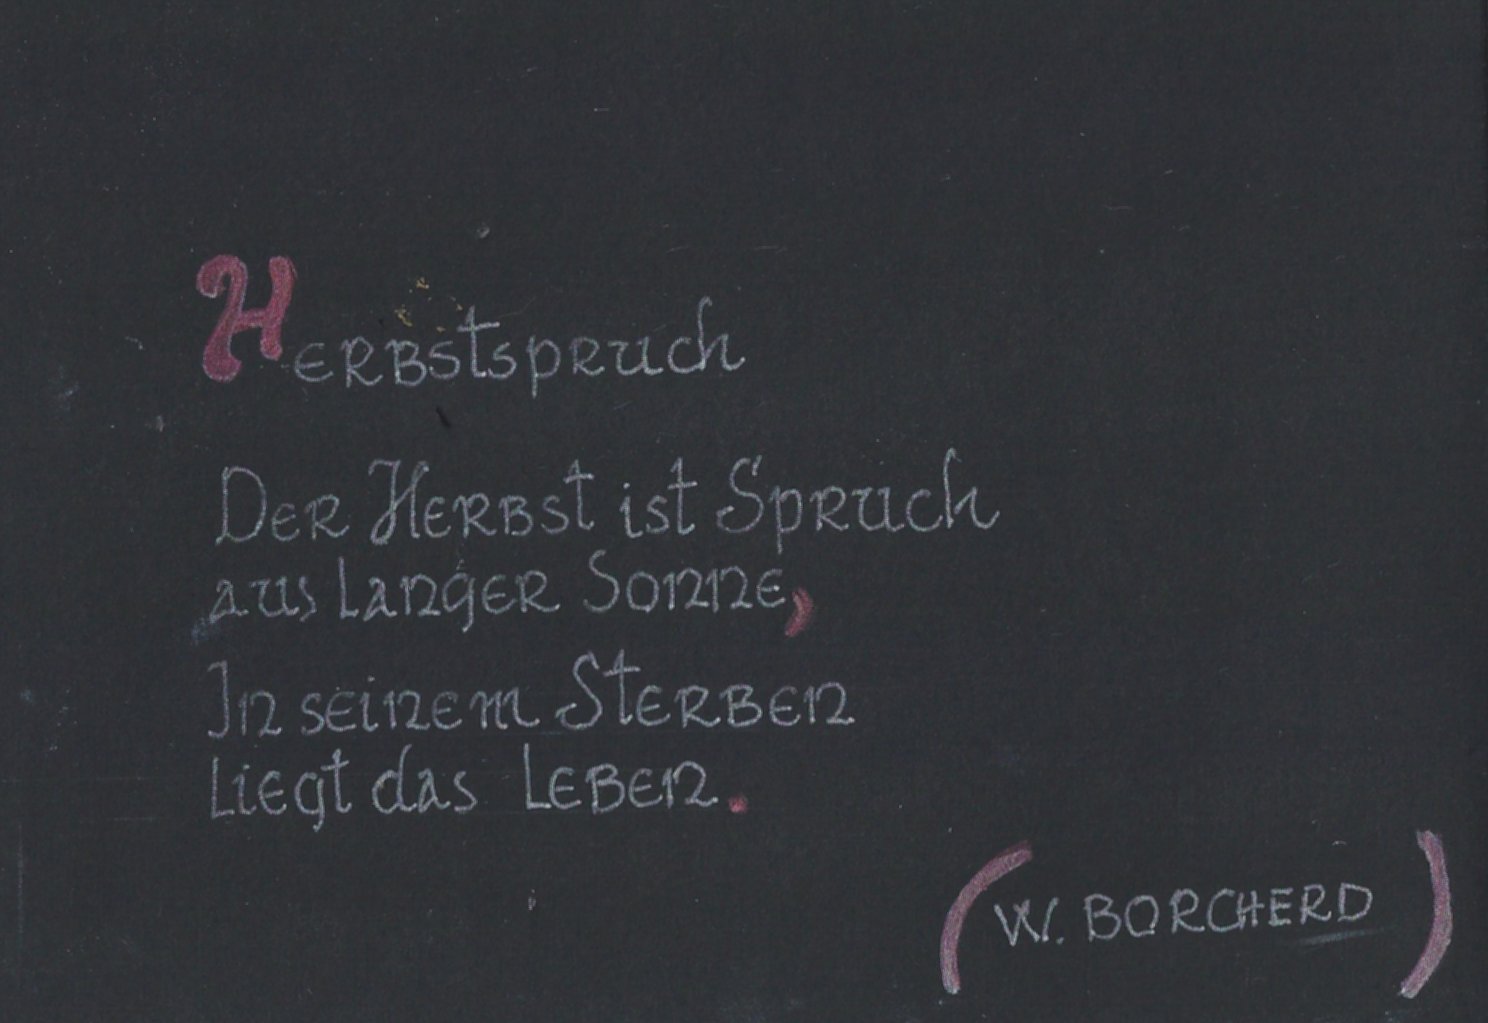 Herbstspruch
Der Herbst ist Spruch
aus langer Sonne,
In seinem Sterben
liegt das Leben.
(W. BORCHERD)